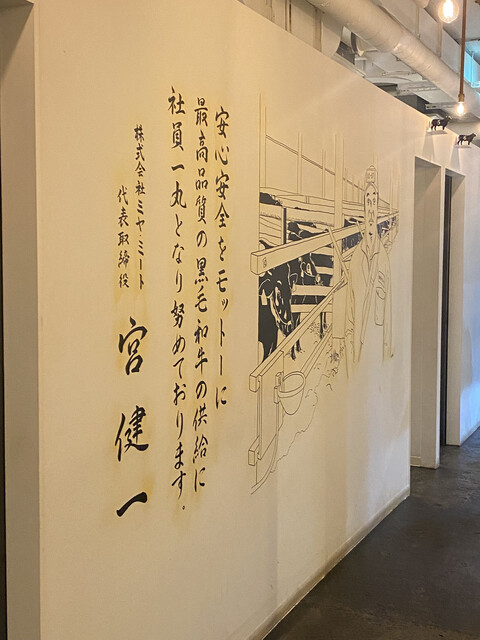 安心安全をモットーに
最高品質の黒毛和牛の供給に
社員一丸となり努めております。
株式会社ミヤミート
代表取締役
宮健一